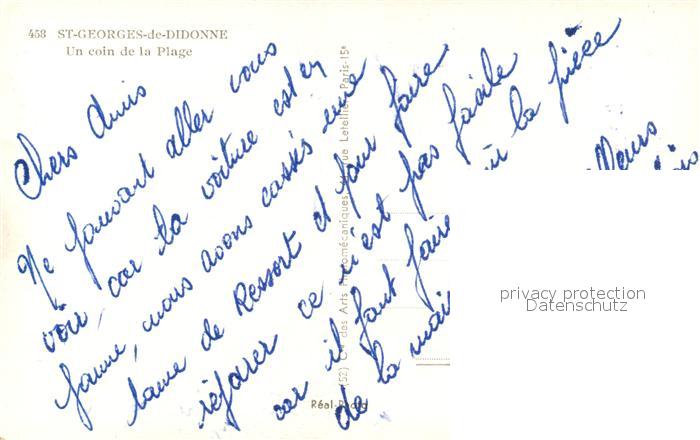 458 ST-GEORGES-de-DIDONNE
Un coin de la Plage
Chers Amis
Ne pouvant aller vous
voir, car la voiture est en
panne, nous avons cassés une
lame de Ressort et pour faire
réparer ce n'est pas facile
car il faut faire la pièce
de la main
Meurs
Réal-Photo
(52) Cie des Arts Photomécaniques, Rue Letellier, Paris-15e
privacy protection
Datenschutz